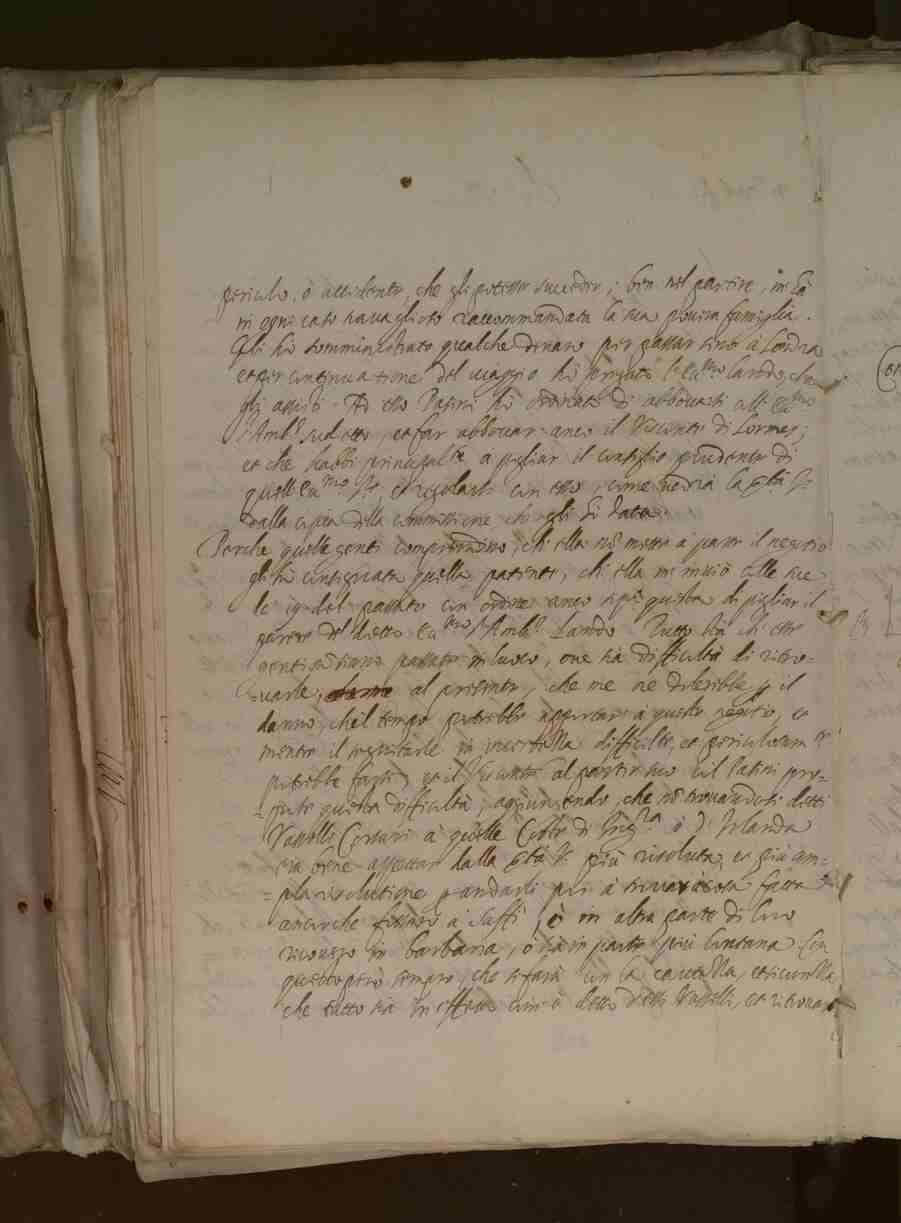 pericolo, ò accidente, che gli potesse succeder; ben nel partire, m'hà
in ogni caso raccommandata la sua povera famiglia.
Gli hò somministrato qualche denaro per passar sino à Londra
et per continuatione del viaggio hò pregato l'Ecc.mo Lando, che
gli assisti. Ad esso Patini hò ordinato di abboccarsi coll' Ecc.mo
S.r Amb.r sudetto, et far abboccar anco il Visconte di Lormes;
et che habbi principal.te a pigliar il consiglio prudente di
quell'Ecc.mo S.re, et regolarsi con esso, come vedrà la Ser.tà V.
dalla copia della commissione, che gli hò data.
Perche quelle genti comprendino, ch'ella nō mette à parte il negotio
gli hò consignata quella patente, ch'ella m'inviò colle sue
de 19 del passato con ordine anco sopra questa di pigliar il
parere del detto Ecc.mo S.r Amb.r Lando. Tutto stà ch'esse
genti nō siano passate in luoco, ove sia difficoltà di ritro=
=varle, al presente, che me ne dolerebbe p il
danno, che'l tempo potrebbe apportar à questo negotio, et
mentre il seguitarle in incertezza difficile, et pericolosam.te
potrebbe farsi, et il Visconte al partir suo col Patini pro=
=pose questa difficoltà, aggiungendo, che nō trovandosi detti
Vasselli Corsari à quelle Coste di Ing.ra ò d'Irlanda
sia bene aspettar dalla Ser.tà V. più risoluta, et più am=
=pla risolutione p andarli à trovar
ancorche fossero à Saffi, ò in altra parte di loro
ricovero in Barbaria, ò sia in parte più lontana. Con
questo però sempre, che si farà con la cautella, et sicurezza
che tutto sia in effetto com'è detto delli Vasselli, et ritrovar